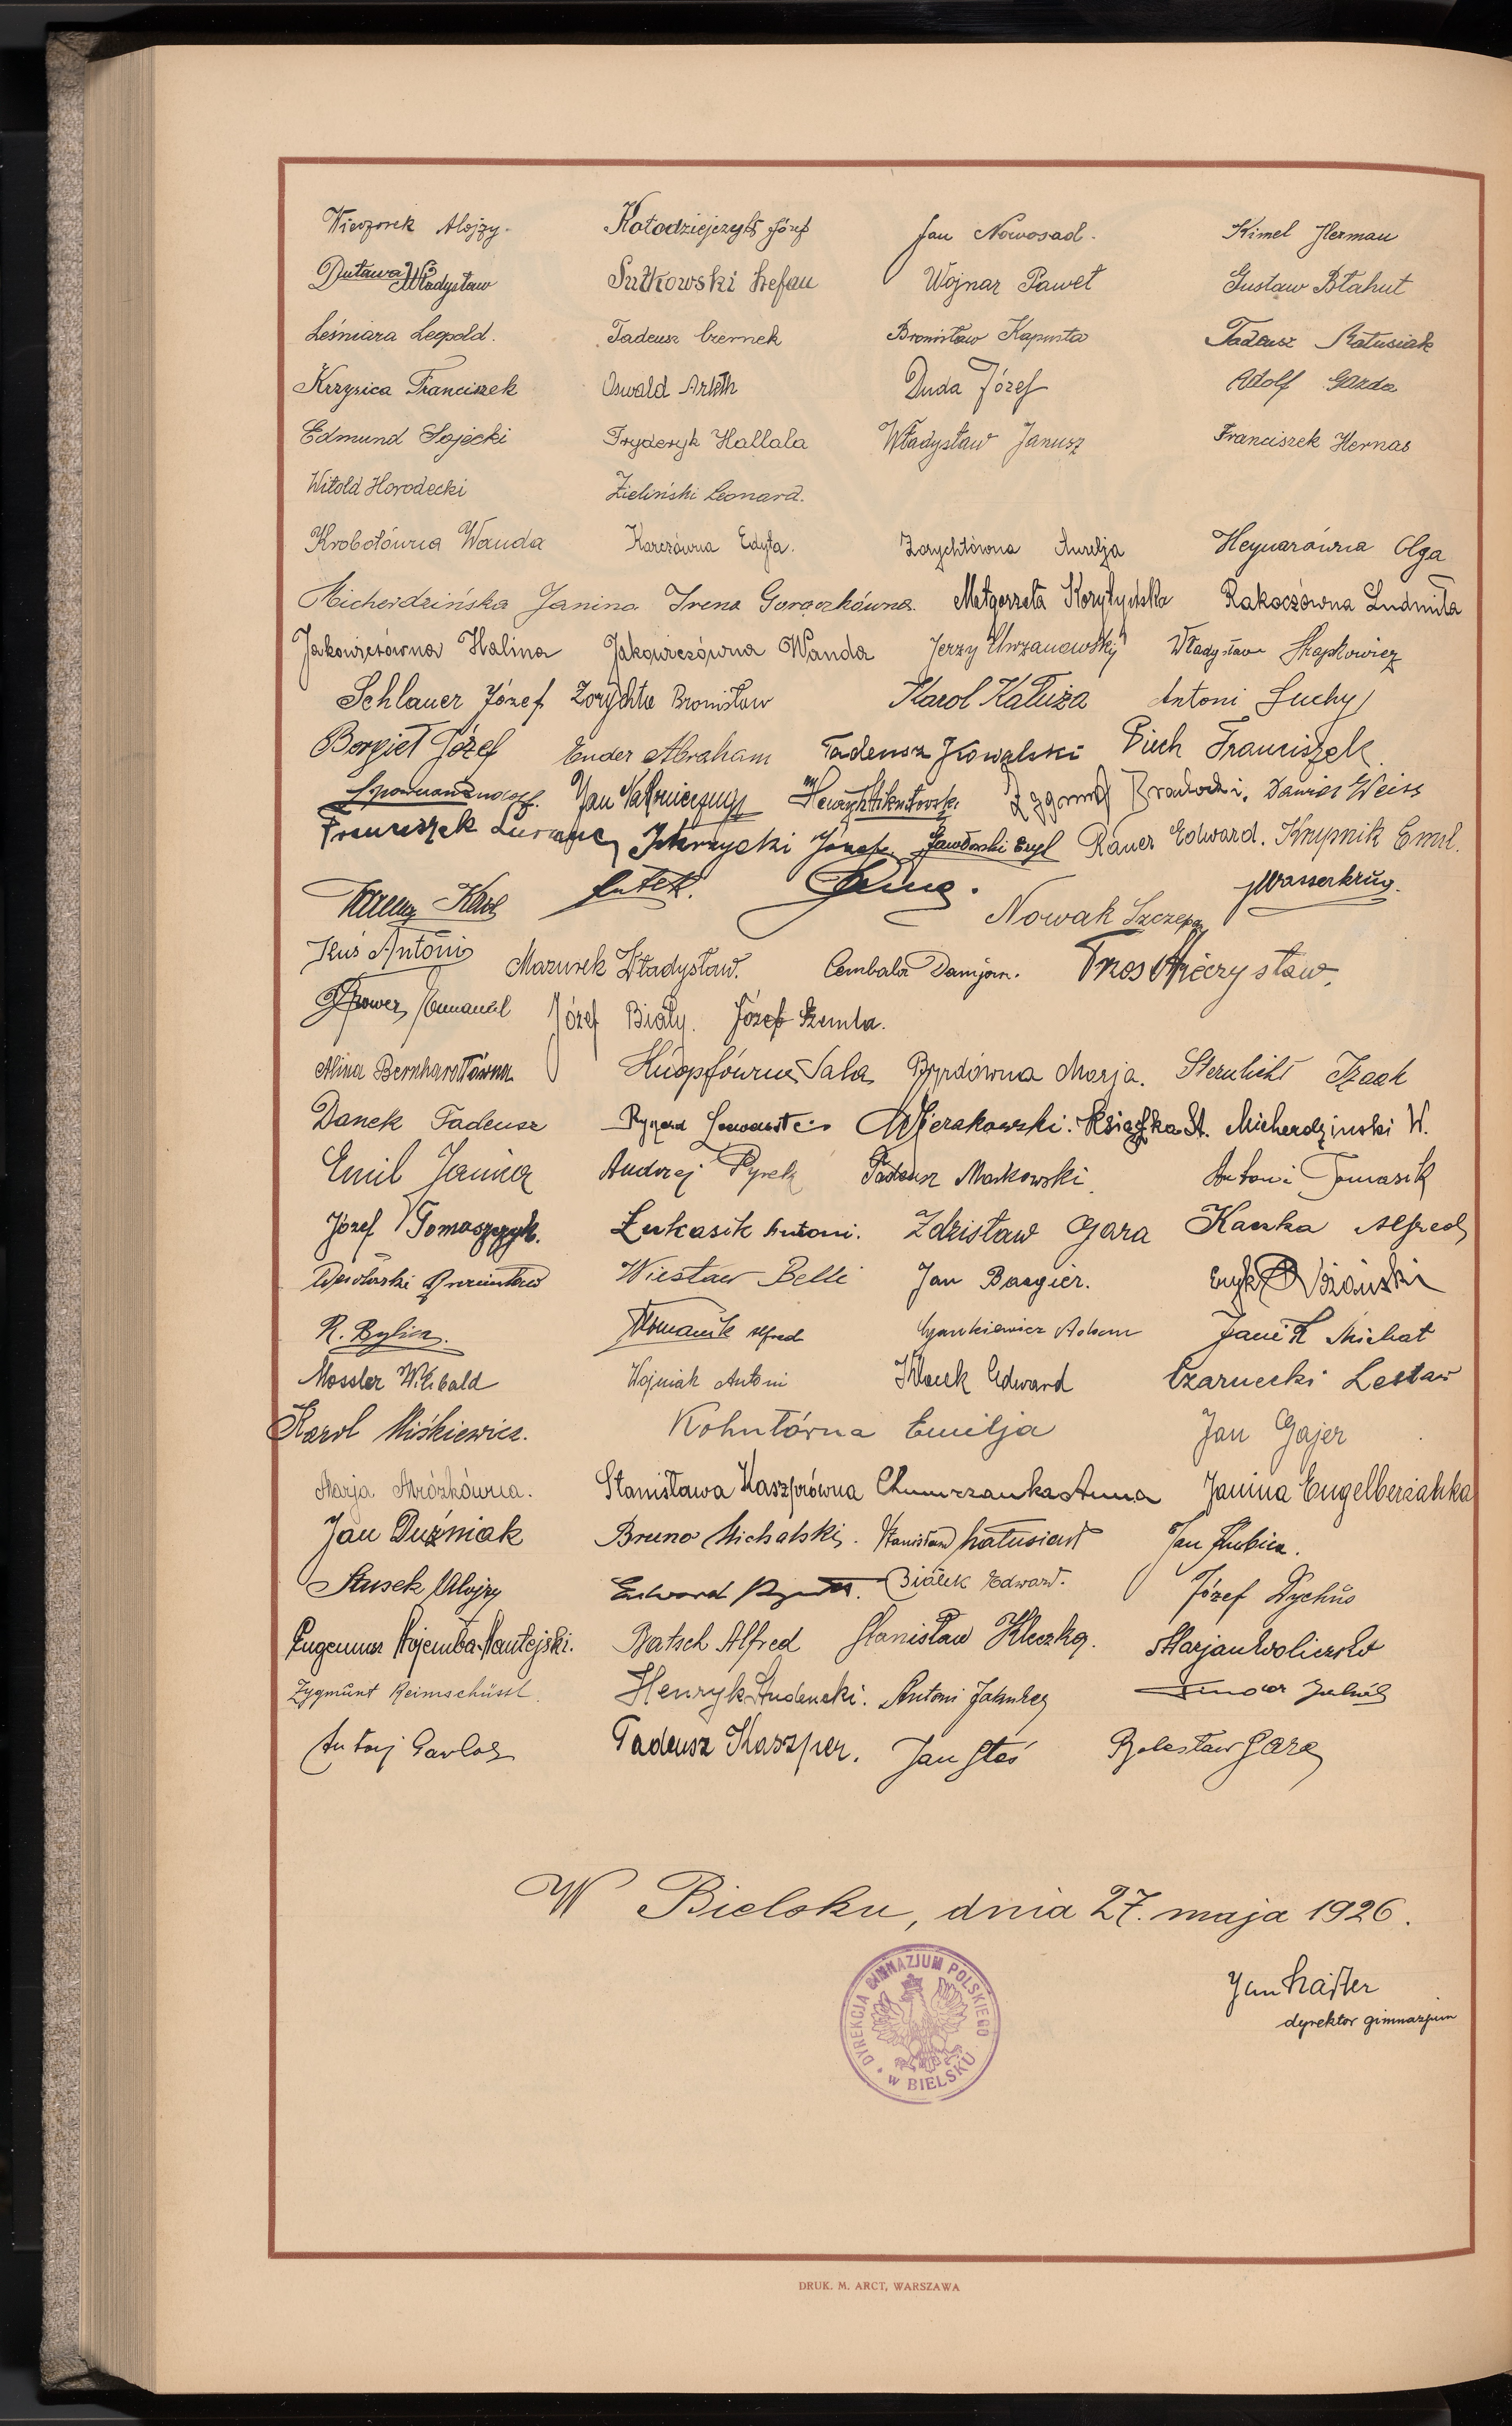 Wieczorek Alojzy. Kołodziejczyk Józef Jan Nowosad. Kimel Herman
Dutawa Władysław Sułkowski Stefan Wojnar Paweł Gustaw Błahut
Leśniara Leopold. Tadeusz Czernek Bronisław Kapusta Tadeusz Ratusiak
Krzysica Franciszek Oswald Arleth Duda Józef Adolf Gazda
Edmund Sojecki Fryderyk Hallala Władysław Janusz Franciszek Hernas
Witold Horodecki Zieliński Leonard.
Krobotówna Wanda Karczówna Edyta. Zorychtówna Aurelja Heynarówna Olga
Micherdzińska Janina Irena Gorączkówna. Małgorzata Korytyńska Rakoczówna Ludmiła
Jakowiczówna Halina Jakowiczówna Wanda Jerzy Chrzanowski Władysław
Schlauer Józef Zorychta Bronisław Karol Kałuża Antoni Suchy
Borgieł Józef Ender Abraham Tadeusz Kowalski Piech Franciszek.
Jan Henryk Zygmunt Daniel Weiss
Franciszek Józef Rauer Edward. Krupnik Emil.
Karol Nowak Szczepan Wasserkrug.
Kuś Antoni Mazurek Władysław. Cembala Damjan. Tros Mieczysław.
Emanuel Józef Biały. Józef Szemla.
Alina Bernhardtówna Sala Marja. Sternlicht Izaak
Danek Tadeusz Książka St. Micherdziński W.
Emil Janina Andrzej Pyrek Tadeusz Markowski Antoni Tomasik
Józef Tomaszczyk. Łukasik Antoni. Zdzisław Gara Kaczka Alfred
Wiesław Belli Jan Bargier.
R. Bylica. Alfred Cyankiewicz Adam Janik Michał
Mossler Wilibald Wojniak Antoni Klocek Edward Czarnecki Lesław
Karol Miśkiewicz. Kohutówna Emilja Jan Gajer
Marja Mrózkówna. Stanisława Kaszprówna Chmurzanka Anna Janina Engelberżanka
Jan Duźniak Bruno Michalski. Stanisław Jan Kubica.
Stusek Alojzy Edward Białek Edward. Józef Dychus
Batsch Alfred Stanisław Kleczka. Marjan
Zygmunt Reimschüssl. Henryk Studencki. Antoni
Tadeusz Kaszper. Jan Stoś Bolesław Gara
W Bielsku, dnia 27. maja 1926.
DYREKCJA GIMNAZJUM POLSKIEGO
W BIELSKU
Jan
dyrektor gimnazjum
DRUK. M. ARCT, WARSZAWA